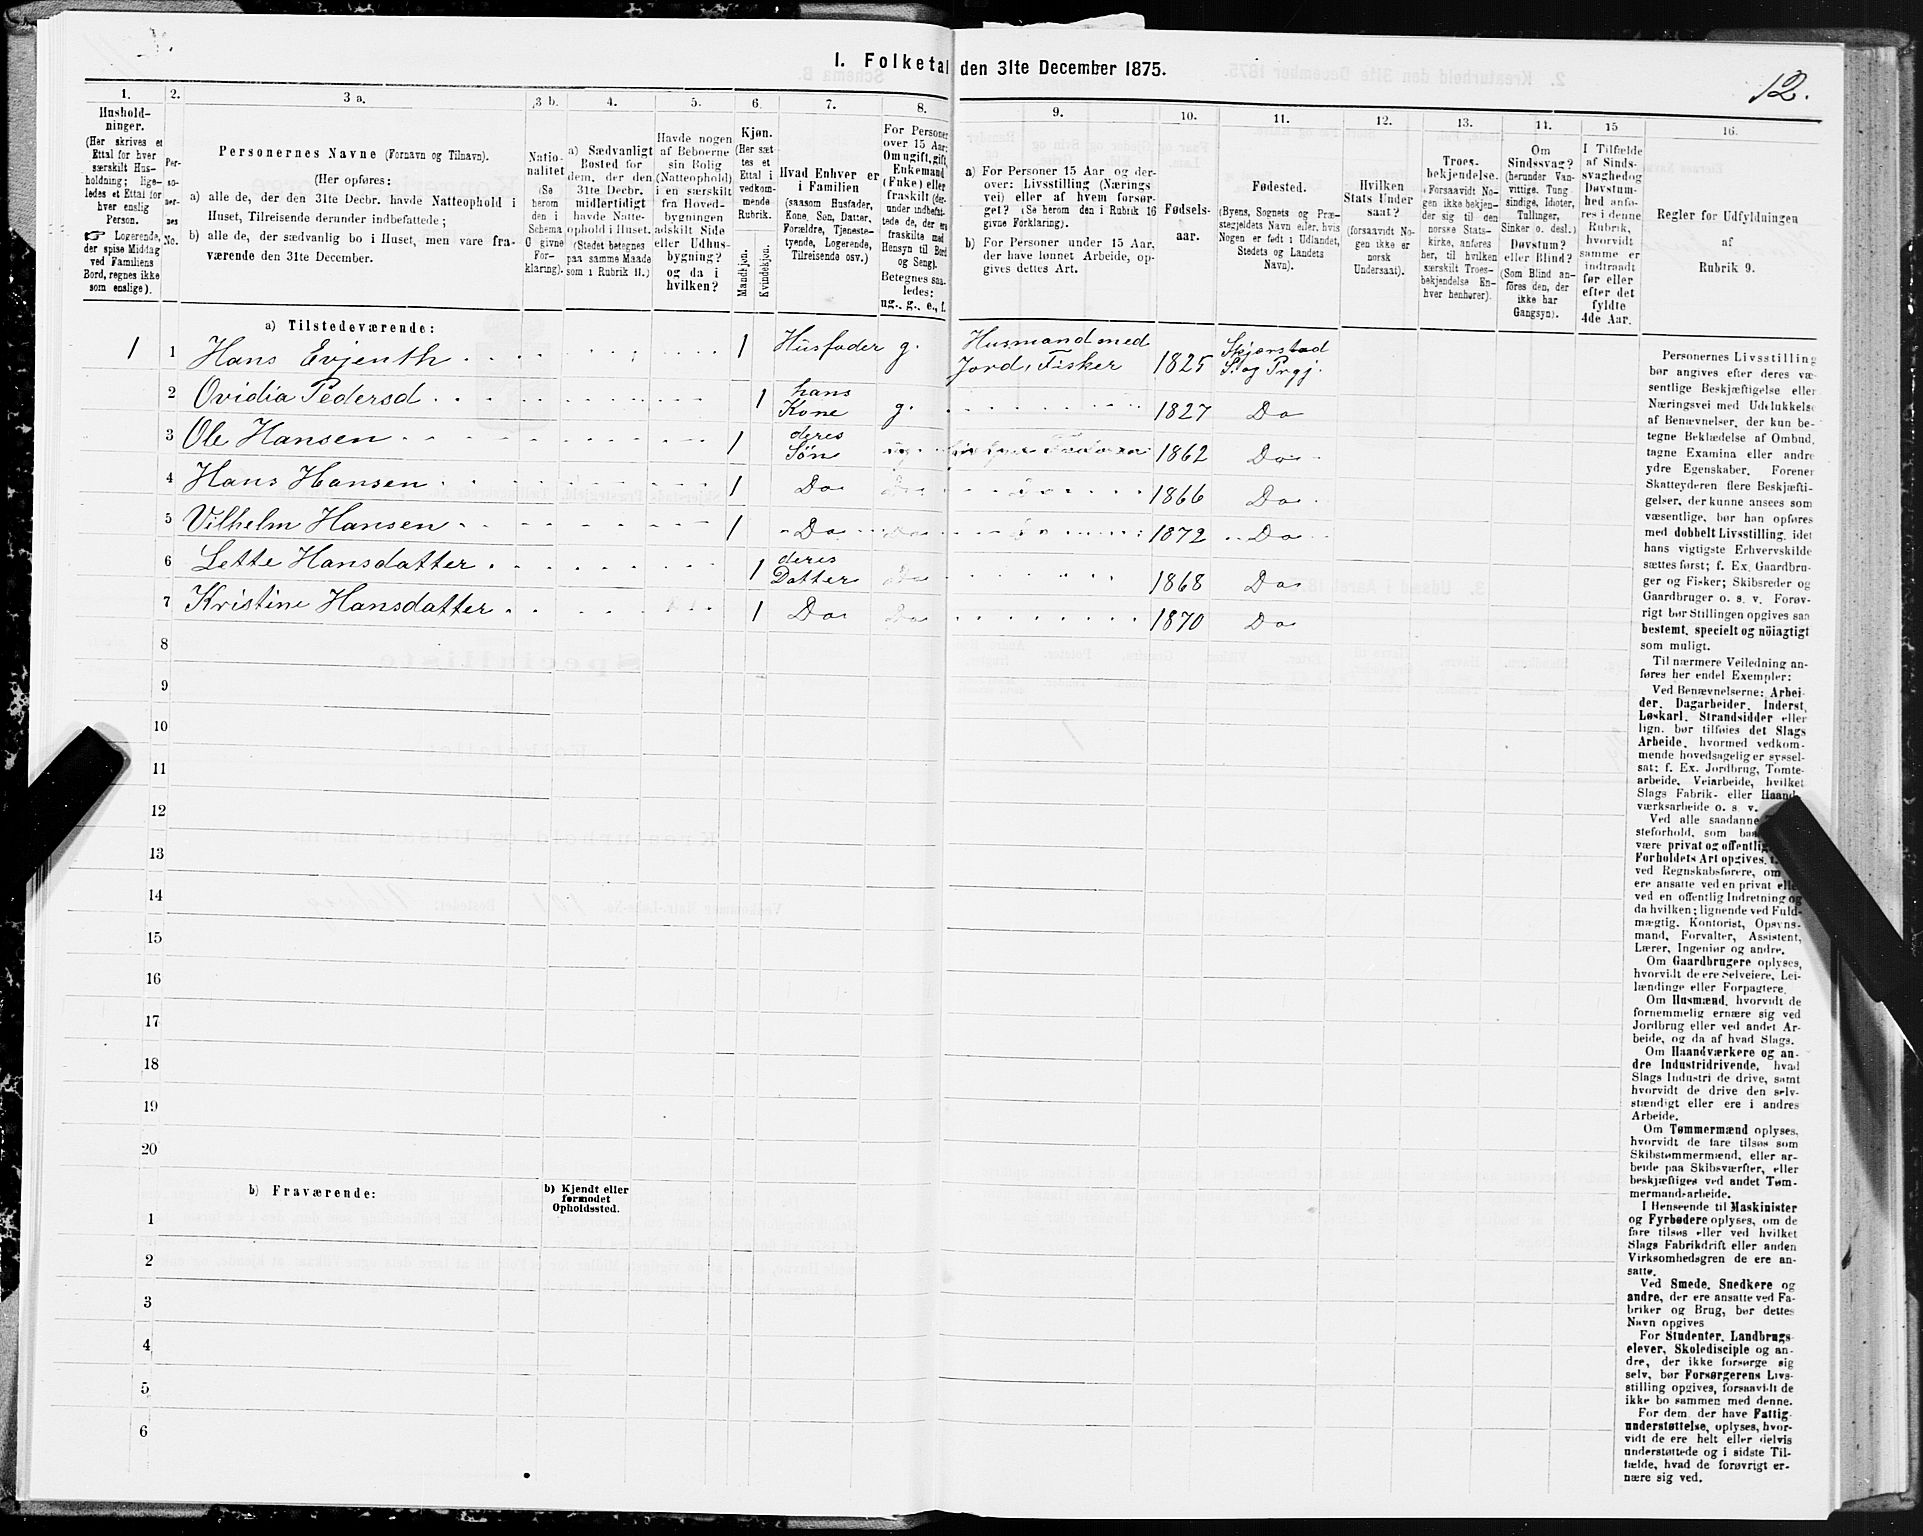 I. Folketal den 31te December 1875.
12.
1.
Hushold-
ninger.
(Her skrives et
Ettal for hver
særskilt Hus-
holdning; lige-
ledes et Ettal for
hver enslig
Person.
☞ Logerende,
der spise Middag
ved Familiens
Bord, regnes ikke
som enslige).
2.
Per-
so-
ner-
nes
No.
3 a.
Personernes Navne (Fornavn og Tilnavn).
(Her opføres:
a) alle de, der den 31te Decbr. havde Natteophold i
Huset, Tilreisende derunder indbefattede;
b) alle de, der sædvanlig bo i Huset, men vare fra-
værende den 31te December.
3 b.
Natio-
nalitet
(Se
herom
den i
Schema
G givne
For-
klaring).
4.
a) Sædvanligt
Bosted for
dem, der den
31te Decbr.
midlertidigt
havde Natte-
ophold i Huset.
(Stedet betegnes
paa samme Maade
som i Rubrik 11.)
5.
Havde nogen
af Beboerne
sin Bolig
(Natteophold)
i en særskilt
fra Hoved-
bygningen
adskilt Side
eller Udhus-
bygning?
og da i
hvilken?
6.
Kjøn.
(Her sæt-
tes et
Ettal i
vedkom-
mende
Rubrik.
Mandkjøn.
Kvindekjøn.
7.
Hvad Enhver er
i Familien
(saasom Husfader,
Kone, Søn, Datter,
Forældre, Tjeneste-
tyende, Logerende,
Tilreisende osv.)
8.
For Personer
over 15 Aar:
Om ugift, gift,
Enkemand
(Enke) eller
fraskilt (der-
under indbefat-
tede de, der ere
fraskilte med
Hensyn til Bord
og Seng).
Betegnes saa-
ledes:
ug., g., e., f.
9.
a) For Personer 15 Aar og der-
over: Livsstilling (Nærings-
vei) eller af hvem forsør-
get? (Se herom den i Rubrik 16
givne Forklaring).
b) For Personer under 15 Aar,
der have lønnet Arbeide, op-
gives dettes Art.
10.
Fødsels-
aar.
11.
Fødested.
(Byens, Sognets og Præ-
stegjeldets Navn eller, hvis
Nogen er født i Udlandet,
Stedets og Landets
Navn).
12.
Hvilken
Stats Under-
saat?
(forsaavidt No-
gen ikke er
norsk
Undersaat).
13.
Troes-
bekjendelse.
(Forsaavidt No-
gen ikke bekjen-
der sig til den
norske Stats-
kirke, anføres
her, til hvilken
særskilt Troes-
bekjendelse En-
hver henhører).
14.
Om
Sindssvag?
(herunder Van-
vittige, Tung-
sindige, Idioter,
Tullinger,
Sinker o. desl.)
Døvstum?
eller Blind?
(Som Blind an-
føres den, der
ikke har
Gangsyn).
15
I Tilfælde
af Sinds-
svaghed og
Døvstum-
hed anfø-
res i denne
Rubrik,
hvorvidt
samme er
indtraadt
før eller
efter det
fyldte
4de Aar.
16.
Regler for Udfyldningen
af
Rubrik 9.
a) Tilstedeværende:
1 1 Hans Evjenth 1 Husfader g. Husmand med Jord, Fisker 1825 Skjerstad S. og Prgj.
2 Ovidia Pedersd 1 hans Kone g. 1827 Do
3 Ole Hansen 1 deres Søn 1862 Do
4 Hans Hansen 1 Do 1866 Do
5 Vilhelm Hansen 1 Do 1872 Do
6 Lette Hansdatter 1 deres Datter 1868 Do
7 Kristine Hansdatter 1 Do 1870 Do
8
9
10
11
12
13
14
15
16
17
18
19
20
b) Fraværende:
b) Kjendt eller
formodet
Opholdssted.
1
2
3
4
5
6
Personernes Livsstilling
bør angives efter deres væ-
sentlige Beskjæftigelse eller
Næringsvei med Udelukkelse
af Benævnelser, der kun be-
tegne Beklædelse af Ombud,
tagne Examina eller andre
ydre Egenskaber. Forener
Skatteyderen flere Beskjæfti-
gelser, der kunne ansees som
væsentlige, bør han opføres
med dobbelt Livsstilling, idet
hans vigtigste Erhvervskilde
sættes først; f. Ex. Gaardbru-
ger og Fisker; Skibsreder og
Gaardbruger o. s. v. Forøv-
rigt bør Stillingen opgives saa
bestemt, specielt og nöiagtigt
som muligt.
Til nærmere Veiledning an-
føres her endel Exempler:
Ved Benævnelserne: Arbei-
der, Dagarbeider, Inderst,
Løskarl, Strandsidder eller
lign. bør tilføies det Slags
Arbeide, hvormed vedkom-
mende hovedsagelig er syssel-
sat; f. Ex. Jordbrug, Tomte-
arbeide, Veiarbeide, hvilket
Slags Fabrik- eller Haand-
værksarbeide o. s. v.
Ved alle saadanne
steforhold, som
være privat og offentlig
Forholdets Art opgives,
ved Regnskabsførere, om
ere ansatte ved en privat eller
ved en offentlig Indretning og
da hvilken; lignende ved Fuld-
mægtig, Kontorist, Opsyns-
mand, Forvalter, Assistent,
Lærer, Ingeniør og andre.
Om Gaardbrugere oplyses,
hvorvidt de ere Selveiere, Lei-
lændinge eller Forpagtere.
Om Husmænd, hvorvidt de
fornemmelig ernære sig ved
Jordbrug eller ved andet Ar-
beide, og da af hvad Slags.
Om Haandværkere og an-
dre Industridrivende, hvad
Slags Industri de drive, samt
hvorvidt de drive den selv-
stændigt eller ere i andres
Arbeide.
Om Tømmermænd oplyses,
hvorvidt de fare tilsøs som
Skibstømmermænd, eller ar-
beide paa Skibsværfter, eller
beskjæftiges ved andet Tøm-
mermandsarbeide.
I Henseende til Maskinister
og Fyrbødere oplyses, om de
fare tilsøs eller ved hvilket
Slags Fabrikdrift eller anden
Virksomhedsgren de ere an-
satte.
Ved Smede, Snedkere og
andre, der ere ansatte ved Fa-
briker og Brug, bør dettes
Navn opgives
For Studenter, Landbrugs-
elever, Skoledisciple og an-
dre, der ikke forsørge sig
selv, bør Forsørgerens Livs-
stilling opgives, forsaavidt de
ikke bo sammen med denne.
For dem, der have Fattig-
understøttelse, oplyses, hvor-
vidt de ere helt eller delvis
understøttede og i sidste Til-
fælde, hvad de forøvrigt er-
nære sig ved.